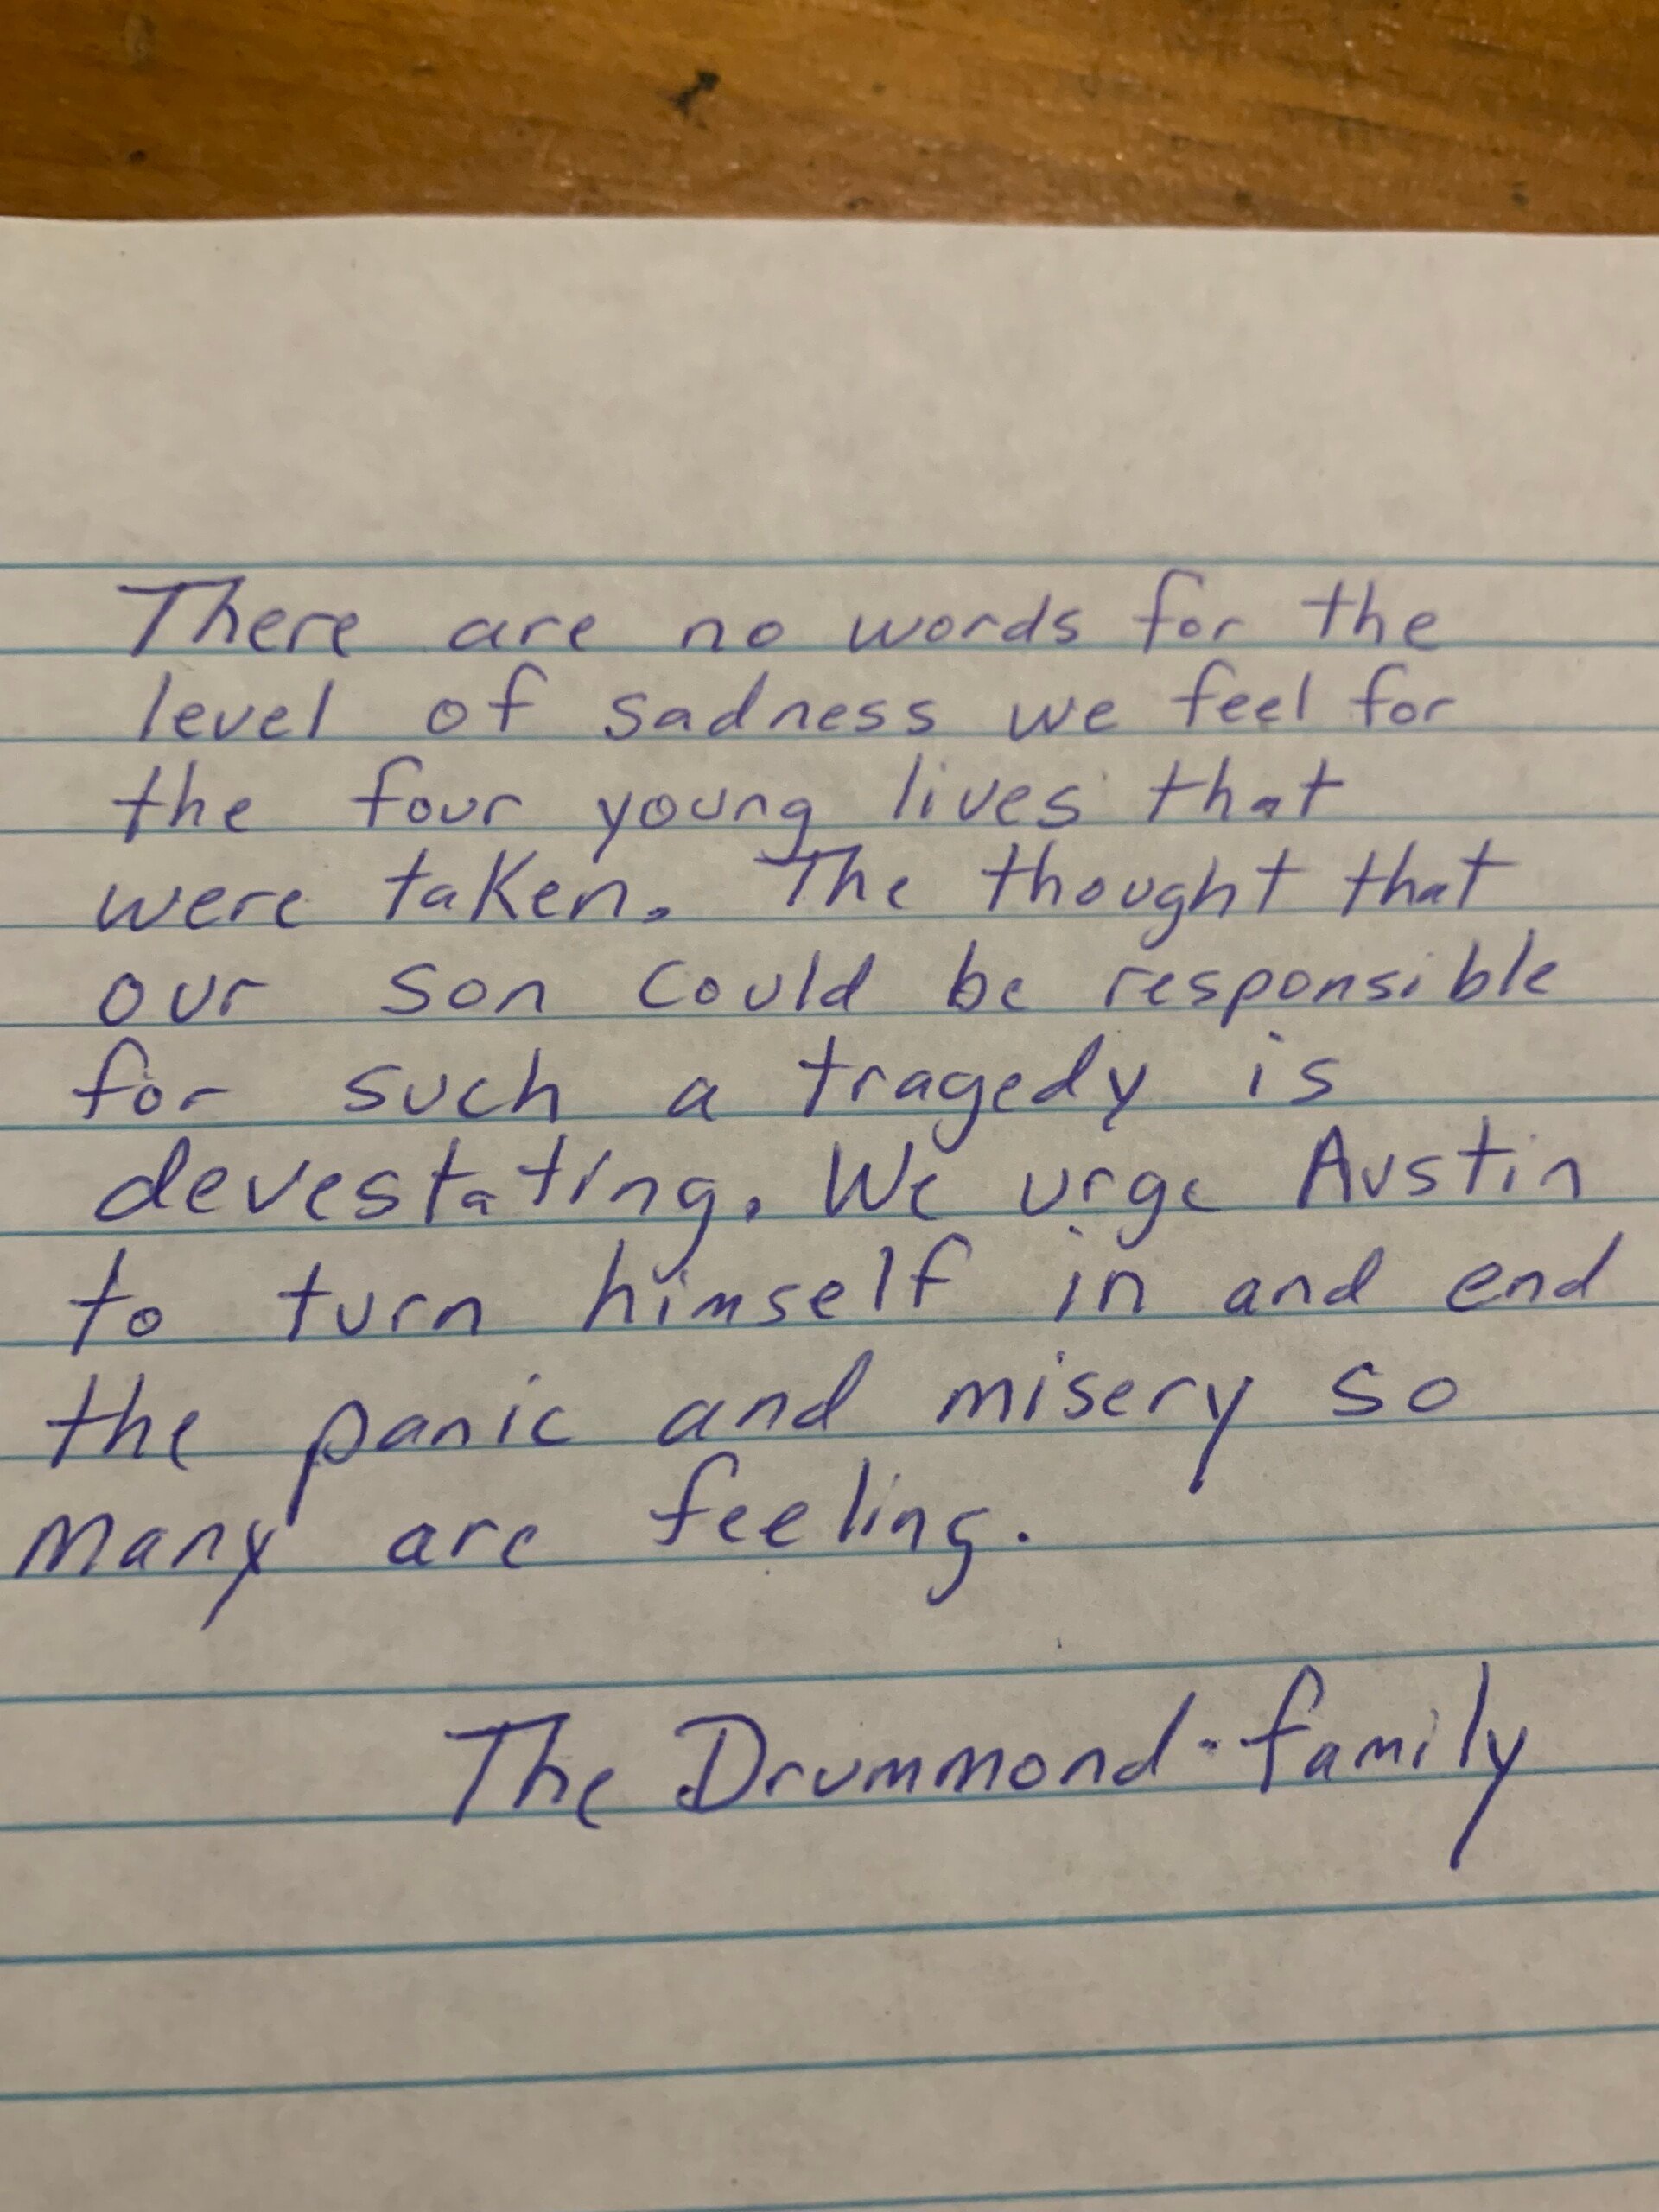 There are no words for the
level of sadness we feel for
the four young lives that
were taken. The thought that
our son could be responsible
for such a tragedy is
devestating. We urge Austin
to turn himself in and end
the panic and misery so
many are feeling.
The Drummond-family